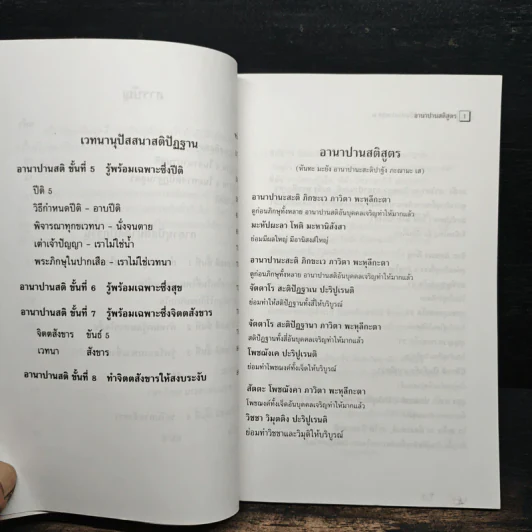 เวทนานุปัสสนาสติปัฏฐาน
อานาปานสติ ขั้นที่ 5 รู้พร้อมเฉพาะซึ่งปีติ
ปีติ 5
วิธีกำหนดปีติ - อาบปีติ
พิจารณาทุกขเวทนา - นั่งจนตาย
เต่าเจ้าปัญญา - เราไม่ใช่น้ำ
พระภิกษุในปากเสือ - เราไม่ใช่เวทนา
อานาปานสติ ขั้นที่ 6 รู้พร้อมเฉพาะซึ่งสุข
อานาปานสติ ขั้นที่ 7 รู้พร้อมเฉพาะซึ่งจิตตสังขาร
จิตตสังขาร ขันธ์ 5
เวทนา สังขาร
อานาปานสติ ขั้นที่ 8 ทำจิตตสังขารให้สงบระงับ
อานาปานสติสูตร 1
อานาปานสติสูตร
(หันทะ มะยัง อานาปานะสะติปาฐัง ภะณามะ เส)
อานาปานะสะติ ภิกขะเว ภาวิตา พะหุลีกะตา
ดูก่อนภิกษุทั้งหลาย อานาปานสติอันบุคคลเจริญทำให้มากแล้ว
มะหัปผะลา โหติ มะหานิสังสา
ย่อมมีผลใหญ่ มีอานิสงส์ใหญ่
อานาปานะสะติ ภิกขะเว ภาวิตา พะหุลีกะตา
ดูก่อนภิกษุทั้งหลาย อานาปานสติอันบุคคลเจริญทำให้มากแล้ว
จัตตาโร สะติปัฏฐาเน ปะริปูเรนติ
ย่อมทำให้สติปัฏฐานทั้งสี่ให้บริบูรณ์
จัตตาโร สะติปัฏฐานา ภาวิตา พะหุลีกะตา
สติปัฏฐานทั้งสี่อันบุคคลเจริญทำให้มากแล้ว
โพชฌังเค ปะริปูเรนติ
ย่อมทำโพชฌงค์ทั้งเจ็ดให้บริบูรณ์
สัตตะ โพชฌังคา ภาวิตา พะหุลีกะตา
โพชฌงค์ทั้งเจ็ดอันบุคคลเจริญทำให้มากแล้ว
วิชชา วิมุตติง ปะริปูเรนติ
ย่อมทำวิชชาและวิมุติให้บริบูรณ์